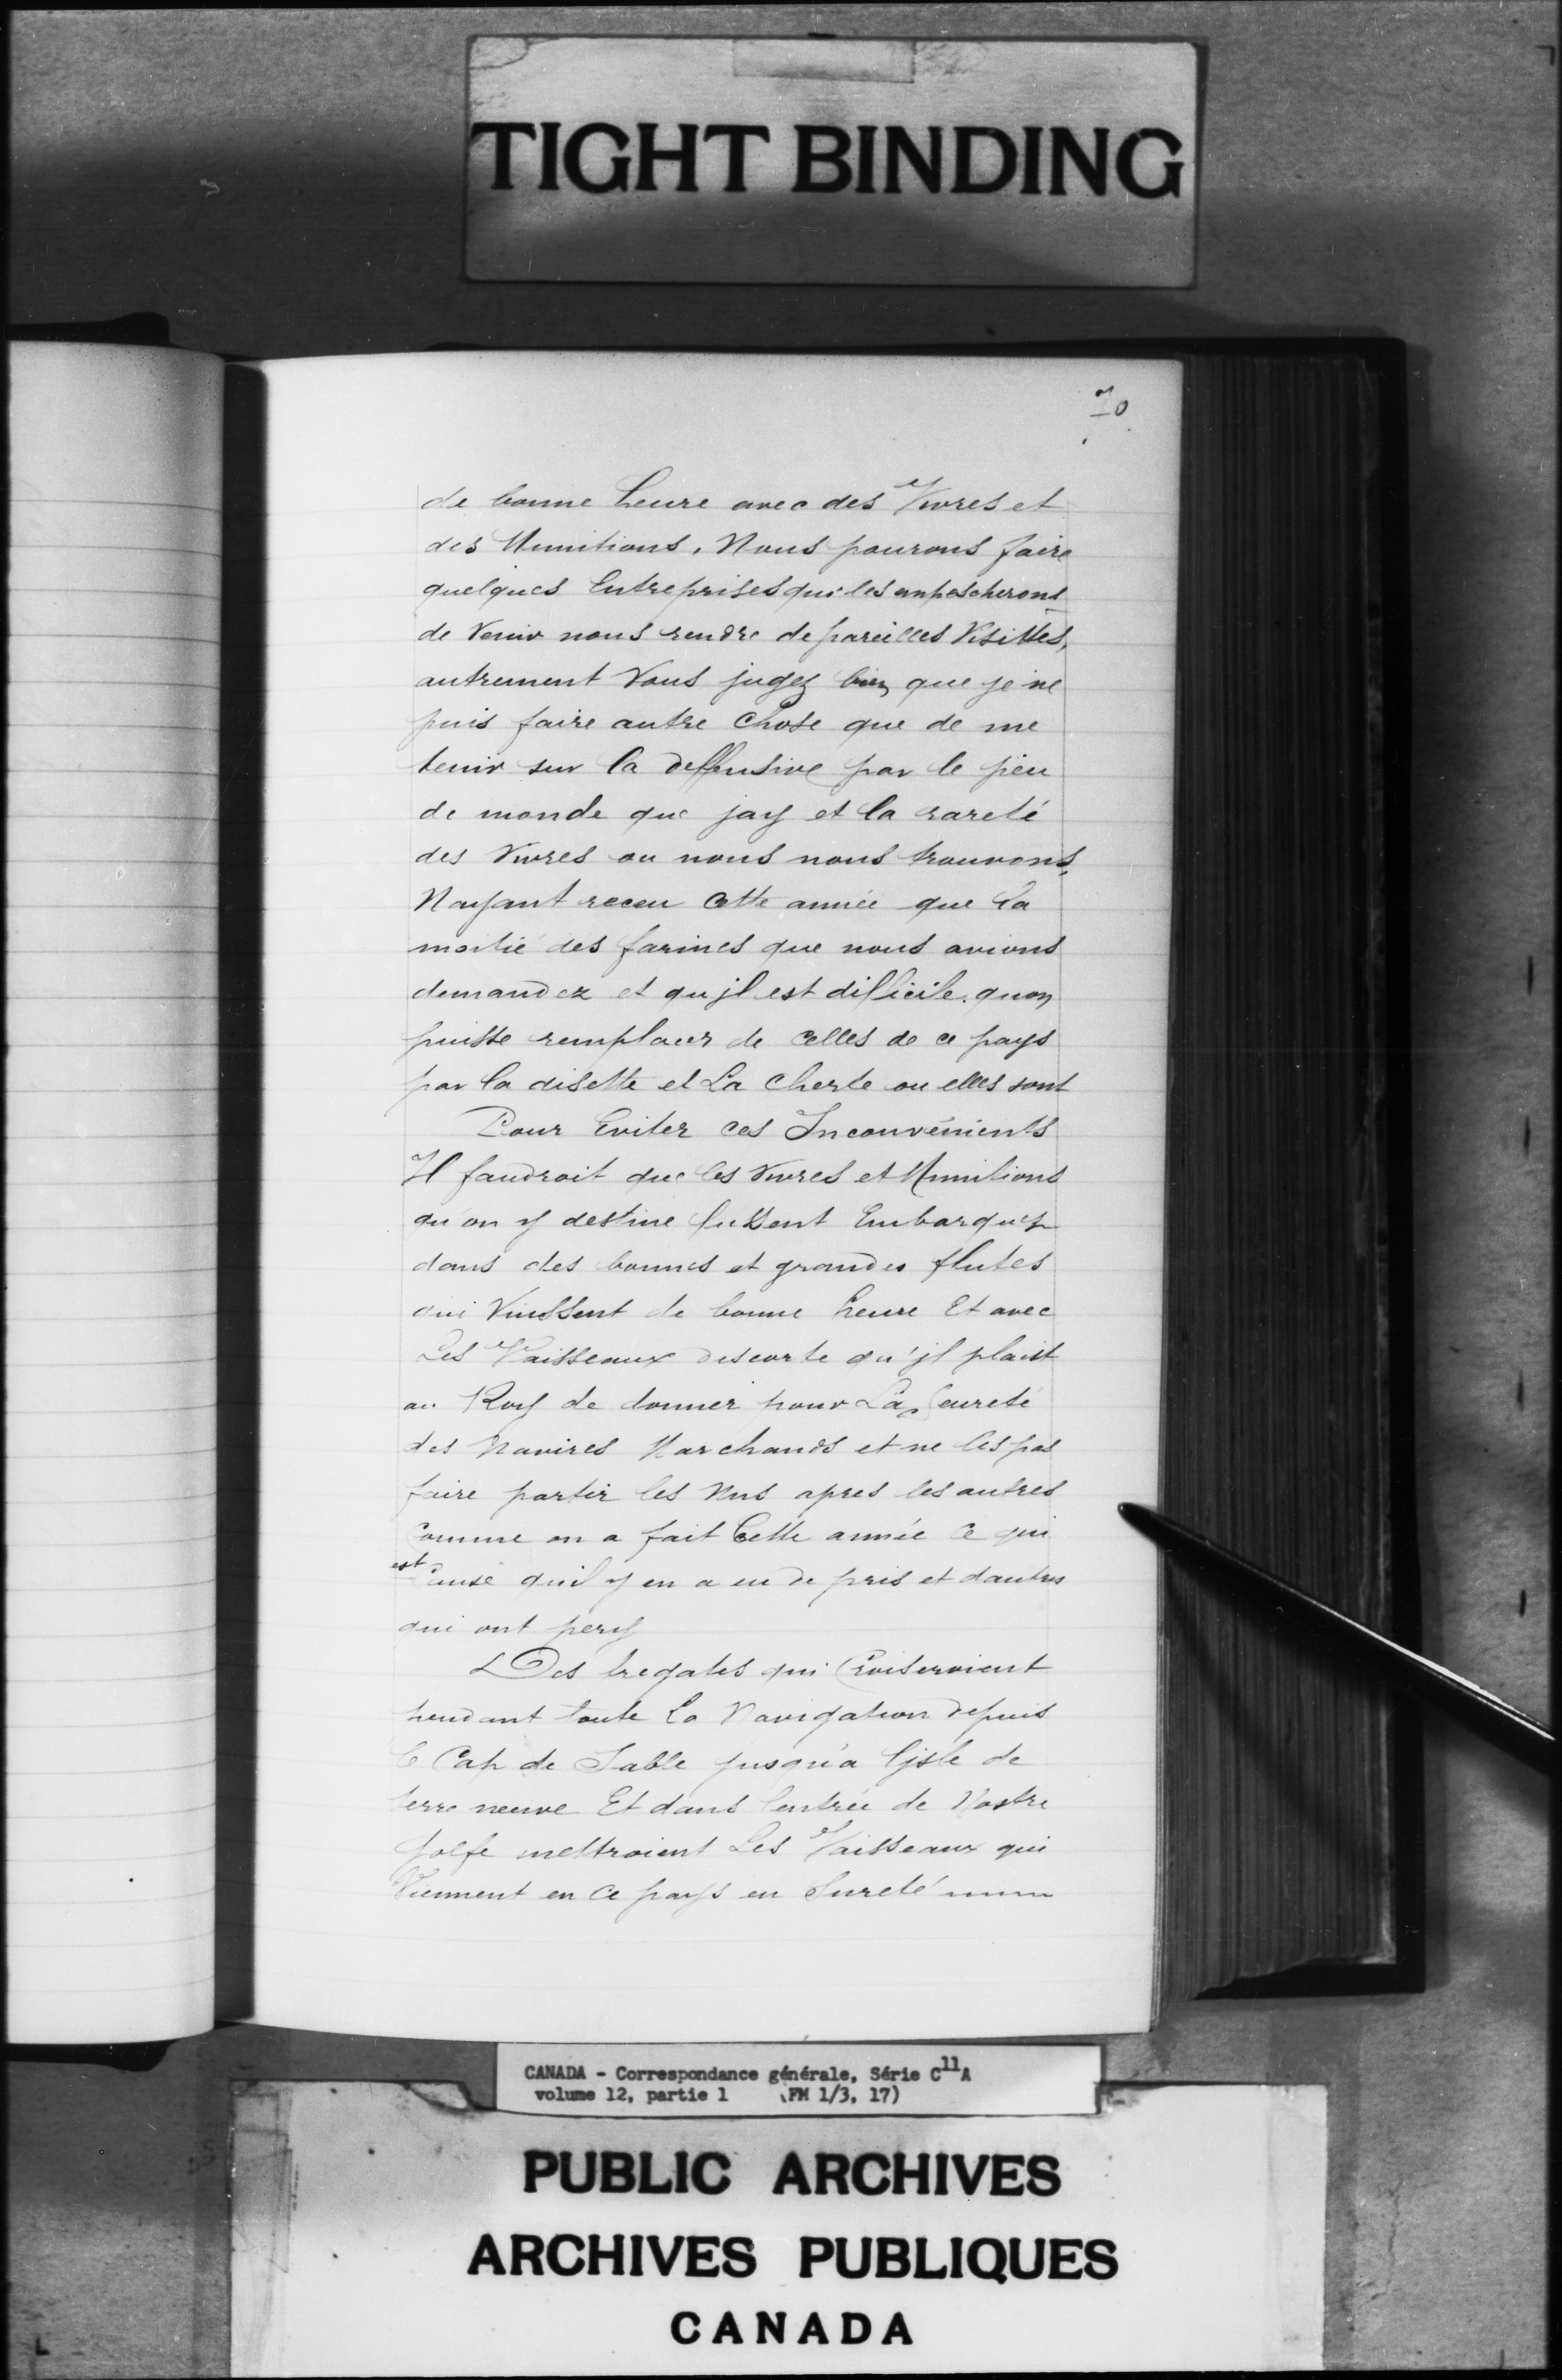 TIGHT BINDING
70
de bonne heure avec des Vivres et
des Munitions, Nous pourons faire
quelques Entreprises qui les enpescherons
de venir nous rendre de pareilles Visittes,
autrement Vous jugez bien que je ne
puis faire autre Chose que de me
tenir sur la deffensive par le peu
de monde que jay et la rareté
des Vivres ou nous nous trouvons,
Nayant receu cette année que la
moitié des farines que nous avions
demandez et qu jl est dificile quon
puisse remplacer de celles de ce pays
par la disette et La Cherte ou elles sont
Pour Eviter ces Inconvénients
Il faudroit que les Vivres et Munitions
qu'on y destine fussent Embarquez
dans des bonnes et grandes flutes
qui Vinssent de bonne heure Et avec
Les Vaisseaux descorte qu'jl plaist
au Roy de donner pour La Seureté
des Navires Marchands et ne les pas
faire partir les Uns apres les autres
Comme on a fait Cette année Ce qui
est Cause quil y en a eu de pris et dautres
qui ont pery
Des fregates qui Croiseroient
pendant toute La Navigation depuis
le Cap de Sable jusqu'a ljsle de
terre neuve Et dans lentrée de Nostre
Golfe mettroient Les Vaisseaux qui
Viennent en Ce pays en Sureté
CANADA - Correspondance générale, Série C11A
volume 12, partie 1 (FM 1/3, 17)
PUBLIC ARCHIVES
ARCHIVES PUBLIQUES
CANADA